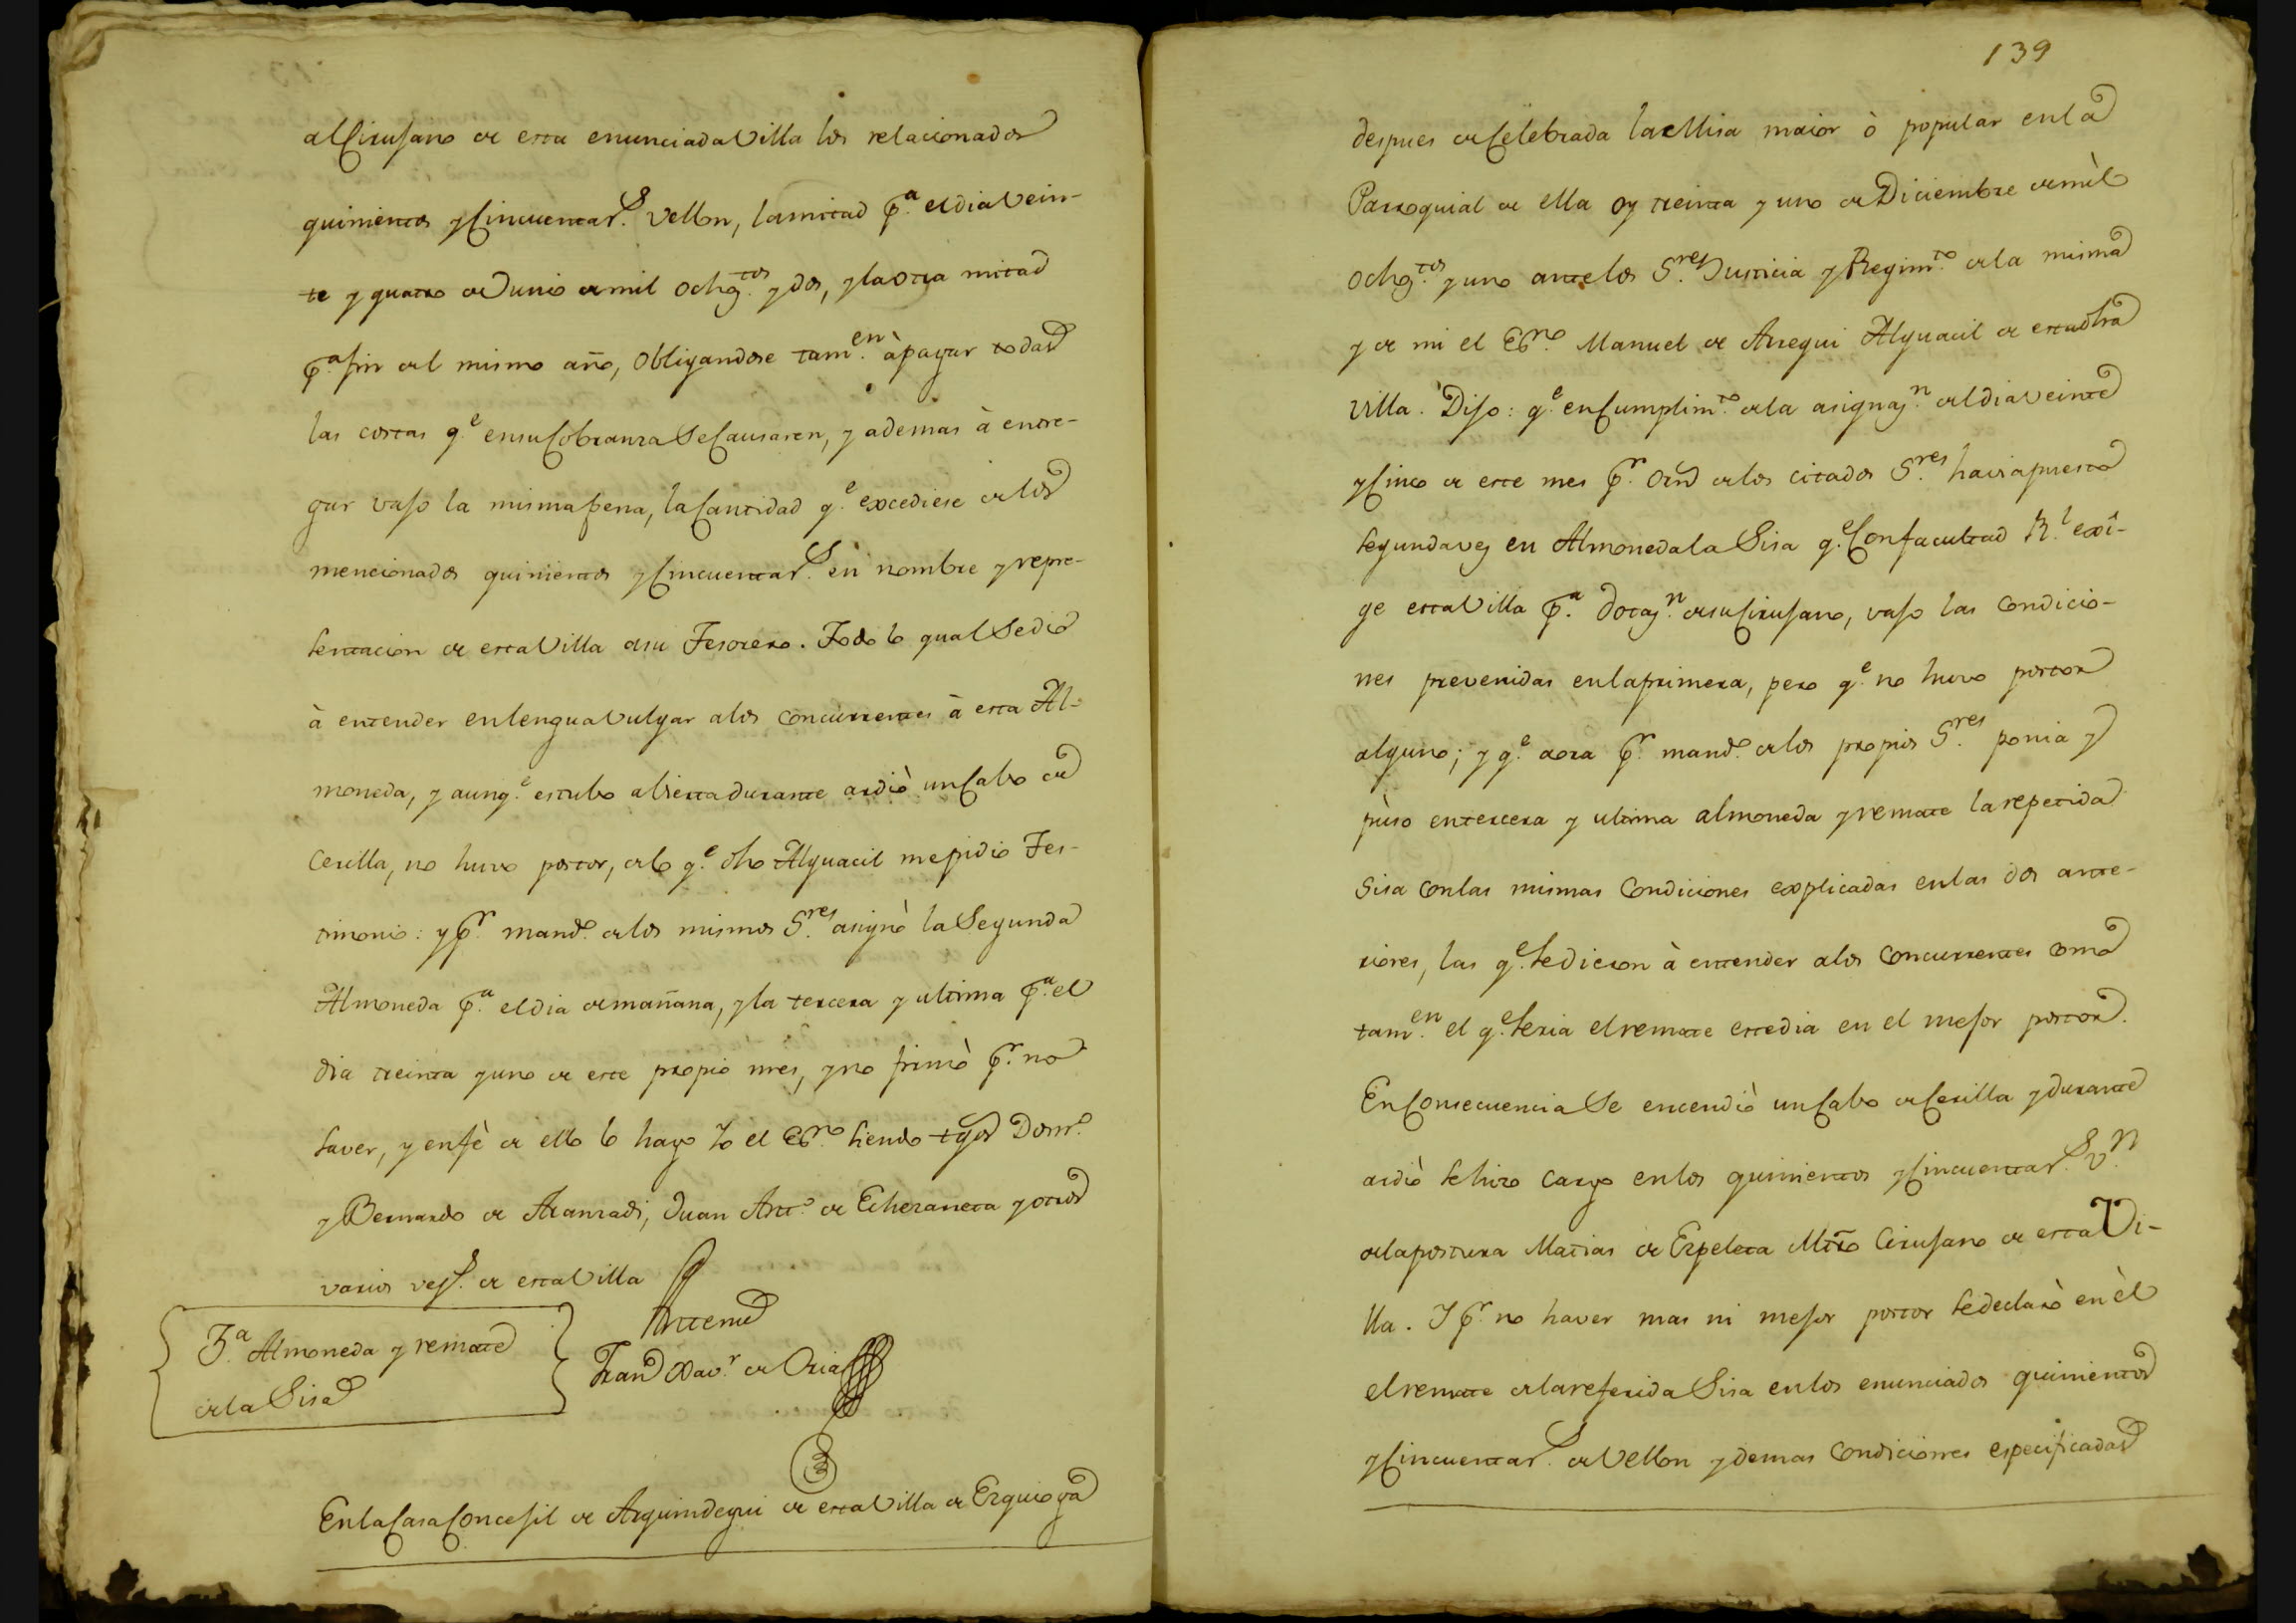 al Cirujano de esta enunciada Villa los relacionados
quinientos y Cincuenta r.s vellon, la mitad p.a el dia vein-
te y quatro de Junio de mil ochog.tos y dos, y la otra mitad
p.a fin del mismo año, obligandose tam.en à pagar todas
las costas q.e en su Cobranza se Causaren, y ademas à entre-
gar vajo la misma pena, la Cantidad q.e excediese de los
mencionados quinientos y Cincuenta r.s en nombre y repre-
sentacion de esta Villa a su Tesorero. Todo lo qual se dio
à entender en lengua vulgar a los concurrentes à esta Al-
moneda, y aunq.e estubo abierta durante ardiò un Cabo de
Cerilla, no huvo postor, de lo q.e dho Alguacil me pidio Tes-
timonio: y p.r mand.o de los mismos S.res asignò la Segunda
Almoneda p.a el dia de mañana, y la tercera y ultima p.a el
dia treinta y uno de este propio mes, y no firmò p.r no
saver, y en fè de ello lo hago Yo el Es.no siendo tgos Dom.o
y Bernardo de Aranzadi, Juan Ant.o de Echezarreta y otros
varios vez.s de esta Villa
Ante mi
Fran.co Xav.r de Oria
3.a Almoneda y remate
de la Sisa
3
En la Casa Concejil de Arguindegui de esta Villa de Ezquioga
139
despues de Celebrada la Misa maior ò popular en la
Parroquial de ella oy treinta y uno de Diciembre de mil
ochog.tos y uno ante los S.res Justicia y Regim.to de la misma
y de mi el Es.no Manuel de Arregui Alguacil de esta dha
villa. Dijo: q.e en Cumplim.to de la asignaz.n del dia veinte
y Cinco de este mes p.r orn de los citados S.res havia puesto
segunda vez en Almoneda la Sisa q.e Con facultad R.l exi-
ge esta Villa p.a dotaz.n de su Cirujano, vajo las condicio-
nes prevenidas en la primera, pero q.e no huvo postor
alguno; y q.e aora p.r mand.o de los propios S.res ponia y
puso en tercera y ultima almoneda y remate la repetida
Sisa con las mismas Condiciones explicadas en las dos ante-
riores, las q.e se dieron à entender a los concurrentes como
tam.en el q.e seria el remate este dia en el mejor postor.
En Consecuencia se encendiò un Cabo de Cerilla y durante
ardiò se hizo cargo en los quinientos y Cincuenta r.s v.n
de la postura Matias de Ezpeleta Mtro Cirujano de esta Vi-
lla. Y p.r no haver mas ni mejor postor se declarò en èl
el remate de la referida Sisa en los enunciados quinientos
y Cincuenta r.s de Vellon y demas Condiciones especificadas